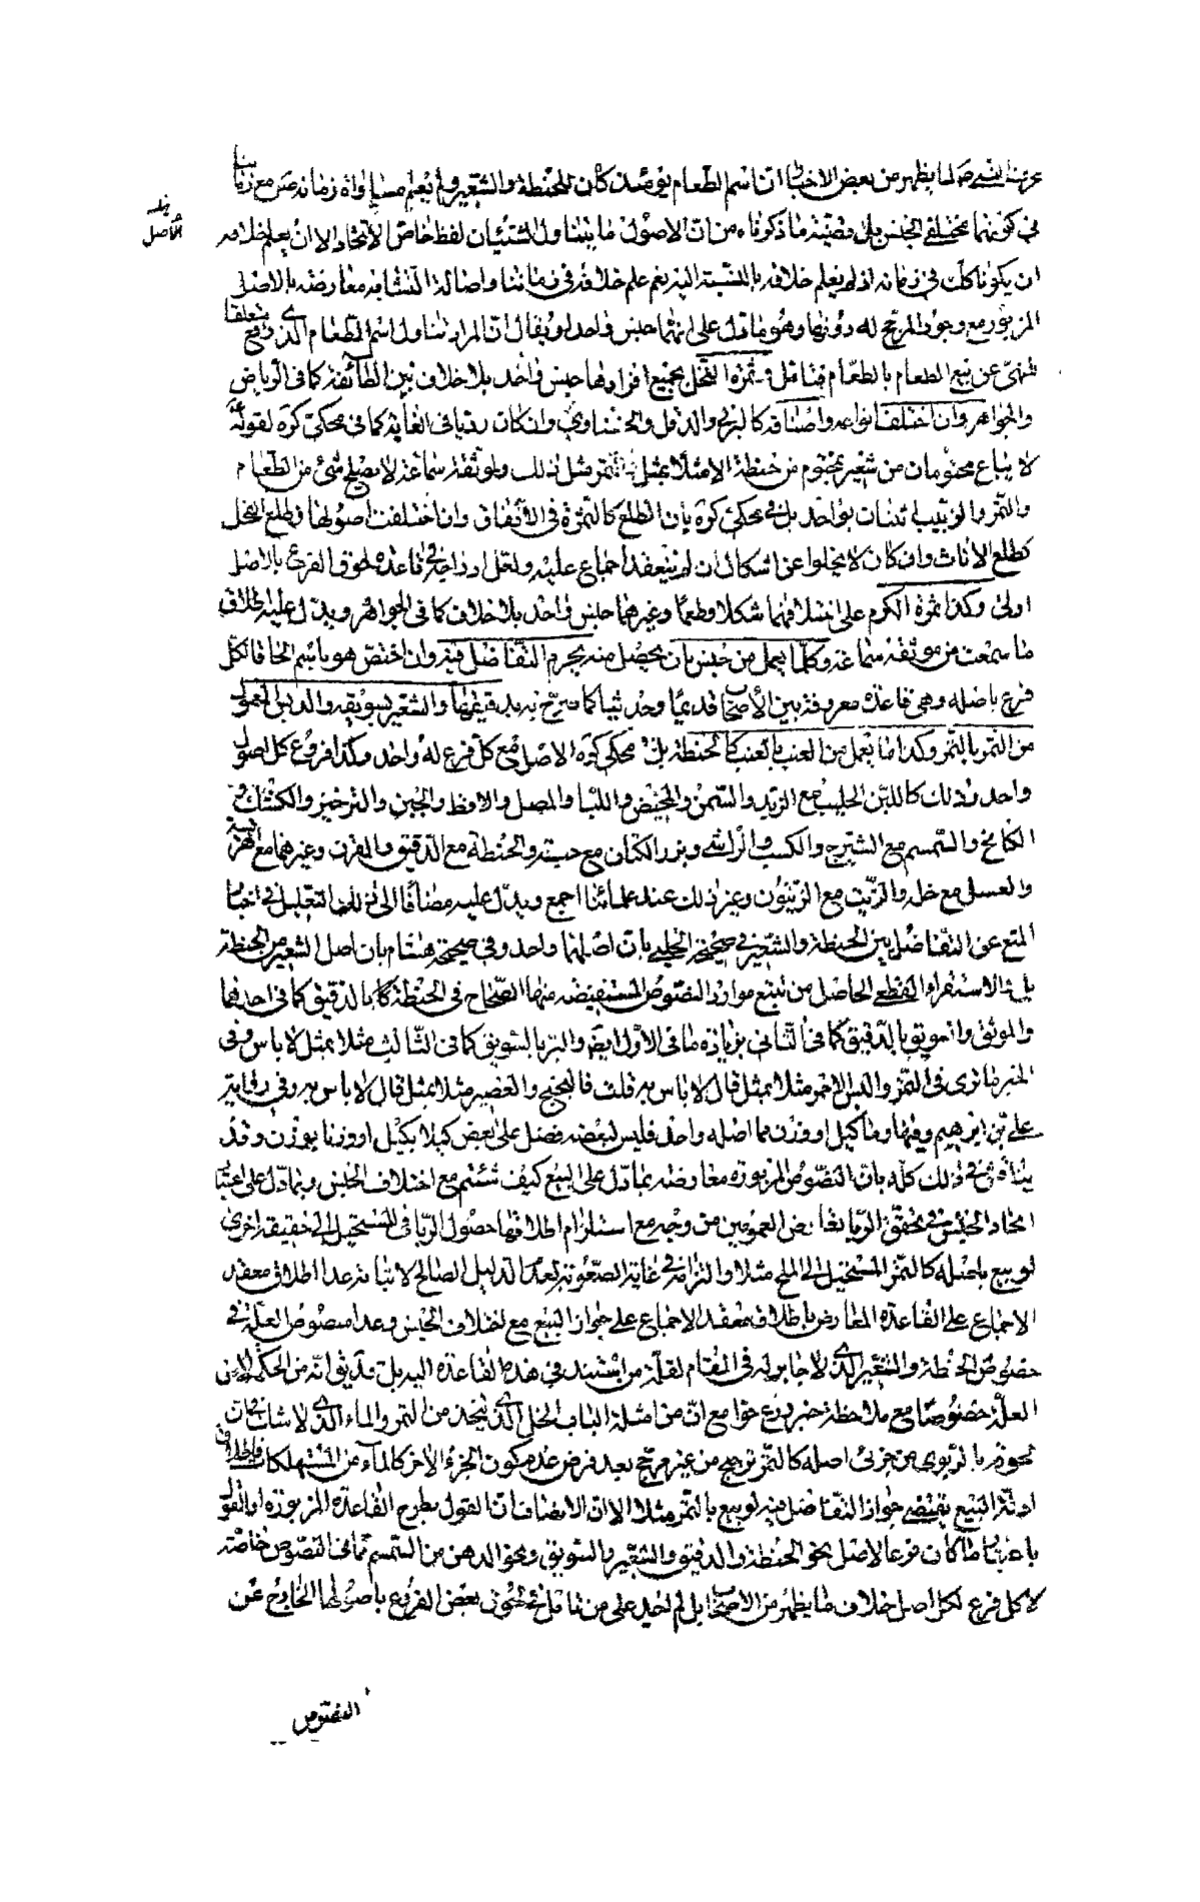 عرفنا لما يظهر من بعض الاخبار ان اسم الطعام يومئذ كان للحنطة والشعير ولم يعلم مساواة زمانه ص مع زماننا
في كونهما مختلفي الجنس بل قضية ما ذكرناه من ان الاصول ما يتناول الشيئان لفظ خاص الاتحاد الا ان يعلم خلافه
بل الاصل
ان يكونا كك في زمانه اذ لم يعلم خلافه بالنسبة اليه نعم علم خلافه في زماننا واصالة التشابه معارضة بالاصل
المزبور مع وجود المرجح له دونها وهو ما دل على انهما جنس واحد او يقال ان المراد تناول اسم الطعام الذي وقع متعلقا
للنهي عن بيع الطعام بالطعام فتامل وثمرة النخل بجميع افرادها جنس واحد بلا خلاف بين الطائفة كما في الرياض
والجواهر وان اختلف انواعه واصنافه كالبرني والدقل وان كان رديا في الغاية كما في محكي كره لقوله
لا يباع مختومان من شعير بمختوم من حنطة الا مثلا بمثل والتمر مثل ذلك وموثقة سماعة لا يصلح شئ من الطعام
والتمر والزبيب اثنان بواحد بل في محكي كره بان الطلع كالثمرة في الاتفاق وان اختلفت اصولها وطلع الفحل
كطلع الاناث وان كان لا يخلوا عن اشكال ان لم ينعقد اجماع عليه ولعل ادراجه في قاعدة لحوق الفرع بالاصل
اولى وكذا ثمرة الكرم على اختلافهما شكلا وطعما وغيرهما جنس واحد بلا خلاف كما في الجواهر ويدل عليه اطلاق
ما سمعت من موثقة سماعة وكلما يعمل من جنس بان يحصل منه يحرم التفاضل فيه وان اختص هو باسم الحاقا لكل
فرع باصله وهي قاعدة معروفة بين الاصحاب قديما وحديثا كالحنطة بدقيقها والشعير بسويقه والدبس المعمول
من التمر بالتمر وكذا ما يعمل من العنب بالعنب كالحنطة بل في محكي كره الاصل مع كل فرع له واحد وكذا فروع كل اصل
واحد وذلك كاللبن الحليب مع الزبد والسمن والمخيض واللبا والمصل والاقط والجبن والترخين والكشك و
الكامخ والسمسم مع الشيرج والكسب والراشي وبزر الكتان مع حبه والحنطة مع الدقيق والفرن وغيرهما مع الهريسة
والعسل مع خله والزيت مع الزيتون وغير ذلك عند علمائنا اجمع ويدل عليه مضافا الى ذلك التعليل في اخبار
المنع عن التفاضل بين الحنطة والشعير في صحيحة الحلبي بان اصلهما واحد وفي صحيحة هشام بان اصل الشعير من الحنطة
بل والاستقراء القطعي الحاصل من تتبع موارد النصوص المستفيضة منها الصحاح في الحنطة بالدقيق كما في احدهما
والموثق والسويق بالدقيق كما في الثاني بزيادة ما في الاول ايضا والبر بالسويق كما في الثالث مثلا بمثل لا باس وفي
الخبر ما ترى في التمر والبسر الاحمر مثلا بمثل قال لا باس به قلت فالبختج والعصير مثلا بمثل قال لا باس به وفي رواية
علي بن ابرهيم وفيها وما كيل او وزن مما اصله واحد فليس لبعضه فضل على بعض كيلا بكيل او وزنا بوزن وقد
يناقش في ذلك كله بان النصوص المزبورة معارضة بما دل على البيع كيف شئتم مع اختلاف الجنس وبما دل على اعتبار
اتحاد الجنس في تحقق الربا تعارض العمومين من وجه مع استلزام اطلاقها حصول الربا في المستحيل الى حقيقة اخرى
لو بيع باصله كالتمر المستحيل الى الملح مثلا والتزامه في غاية الصعوبة لعدم الدليل الصالح لاثباته عدا اطلاق معقد
الاجماع على القاعدة المعارض باطلاق معقد الاجماع على جواز البيع مع اختلاف الجنس وعدا منصوص العلة في
خصوص الحنطة والشعير الذي لا جابر له في المقام لقلة من استند في هذه القاعدة اليه بل قد يق انه من الحكمة لا من
العلة خصوصا مع ملاحظة مع ان من امثلة الباب الخل الذي يتخذ من التمر والماء الذي لا شك في ان
بالربوي من جزئي اصله كالتمر ترجيح من غير مرجح بعد فرض عدم كون الجزء الاخر كالماء من المستهلكات فاطلاق
ادلة البيع يقتضي جواز التفاضل فيه لو بيع بالتمر مثلا الا ان الانصاف ان القول بطرح القاعدة المزبورة او القول
باعتبار ما كان فرعا لاصل نحو الحنطة والدقيق والشعير والسويق ونحو الدهن من السمسم مما في النصوص خاصة
لا كل فرع لكل اصل خلاف ما يظهر من الاصحاب بل لم نجد على من تامل في لحوق بعض الفروع باصولها الخارج عن
النصوص